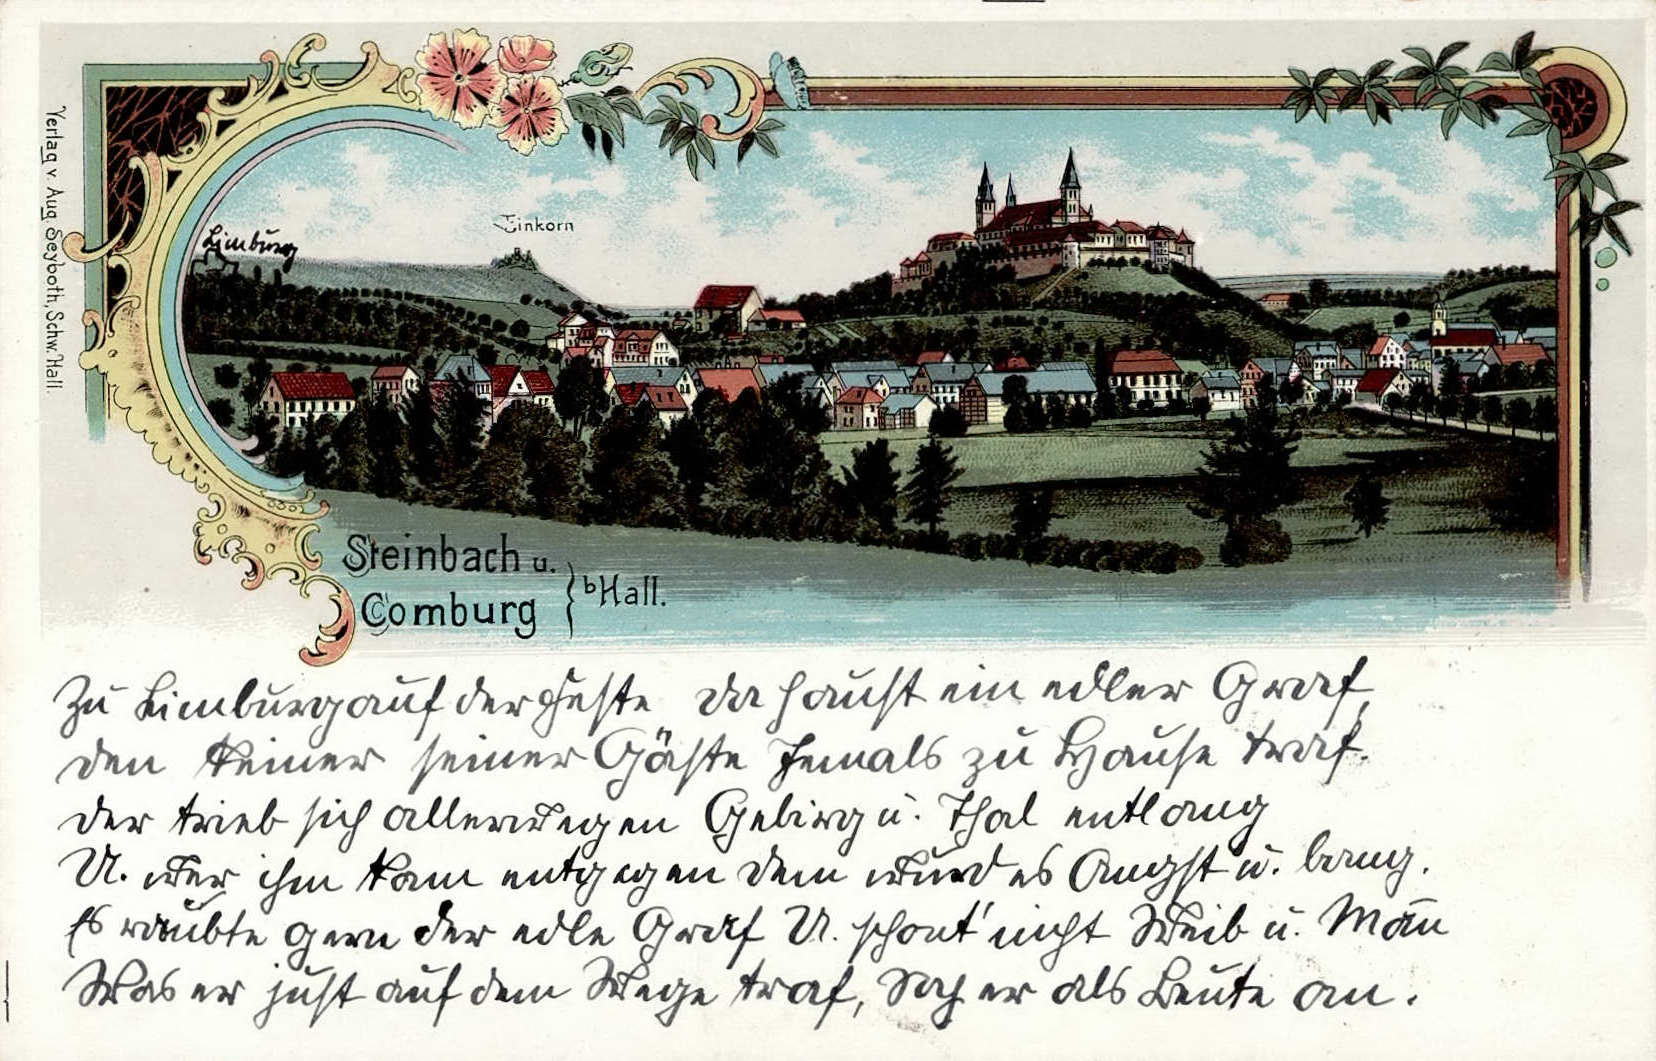 Verlag v. Aug. Seyboth, Schw. Hall.
Limburg
Einkorn
Steinbach u.
Comburg
b Hall.
Zu Limburg auf der Feste da haust ein edler Graf,
den keiner seiner Gäste Jemals zu Hause traf.
der trieb sich allerwegen Gebirg u. Thal entlang
U. wer ihm kam entgegen dem wurd es Angst u. bang.
Es raubte gern der edle Graf U. schont' nicht Weib u. Man̄
Was er just auf dem Wege traf, Sah er als Beute an.